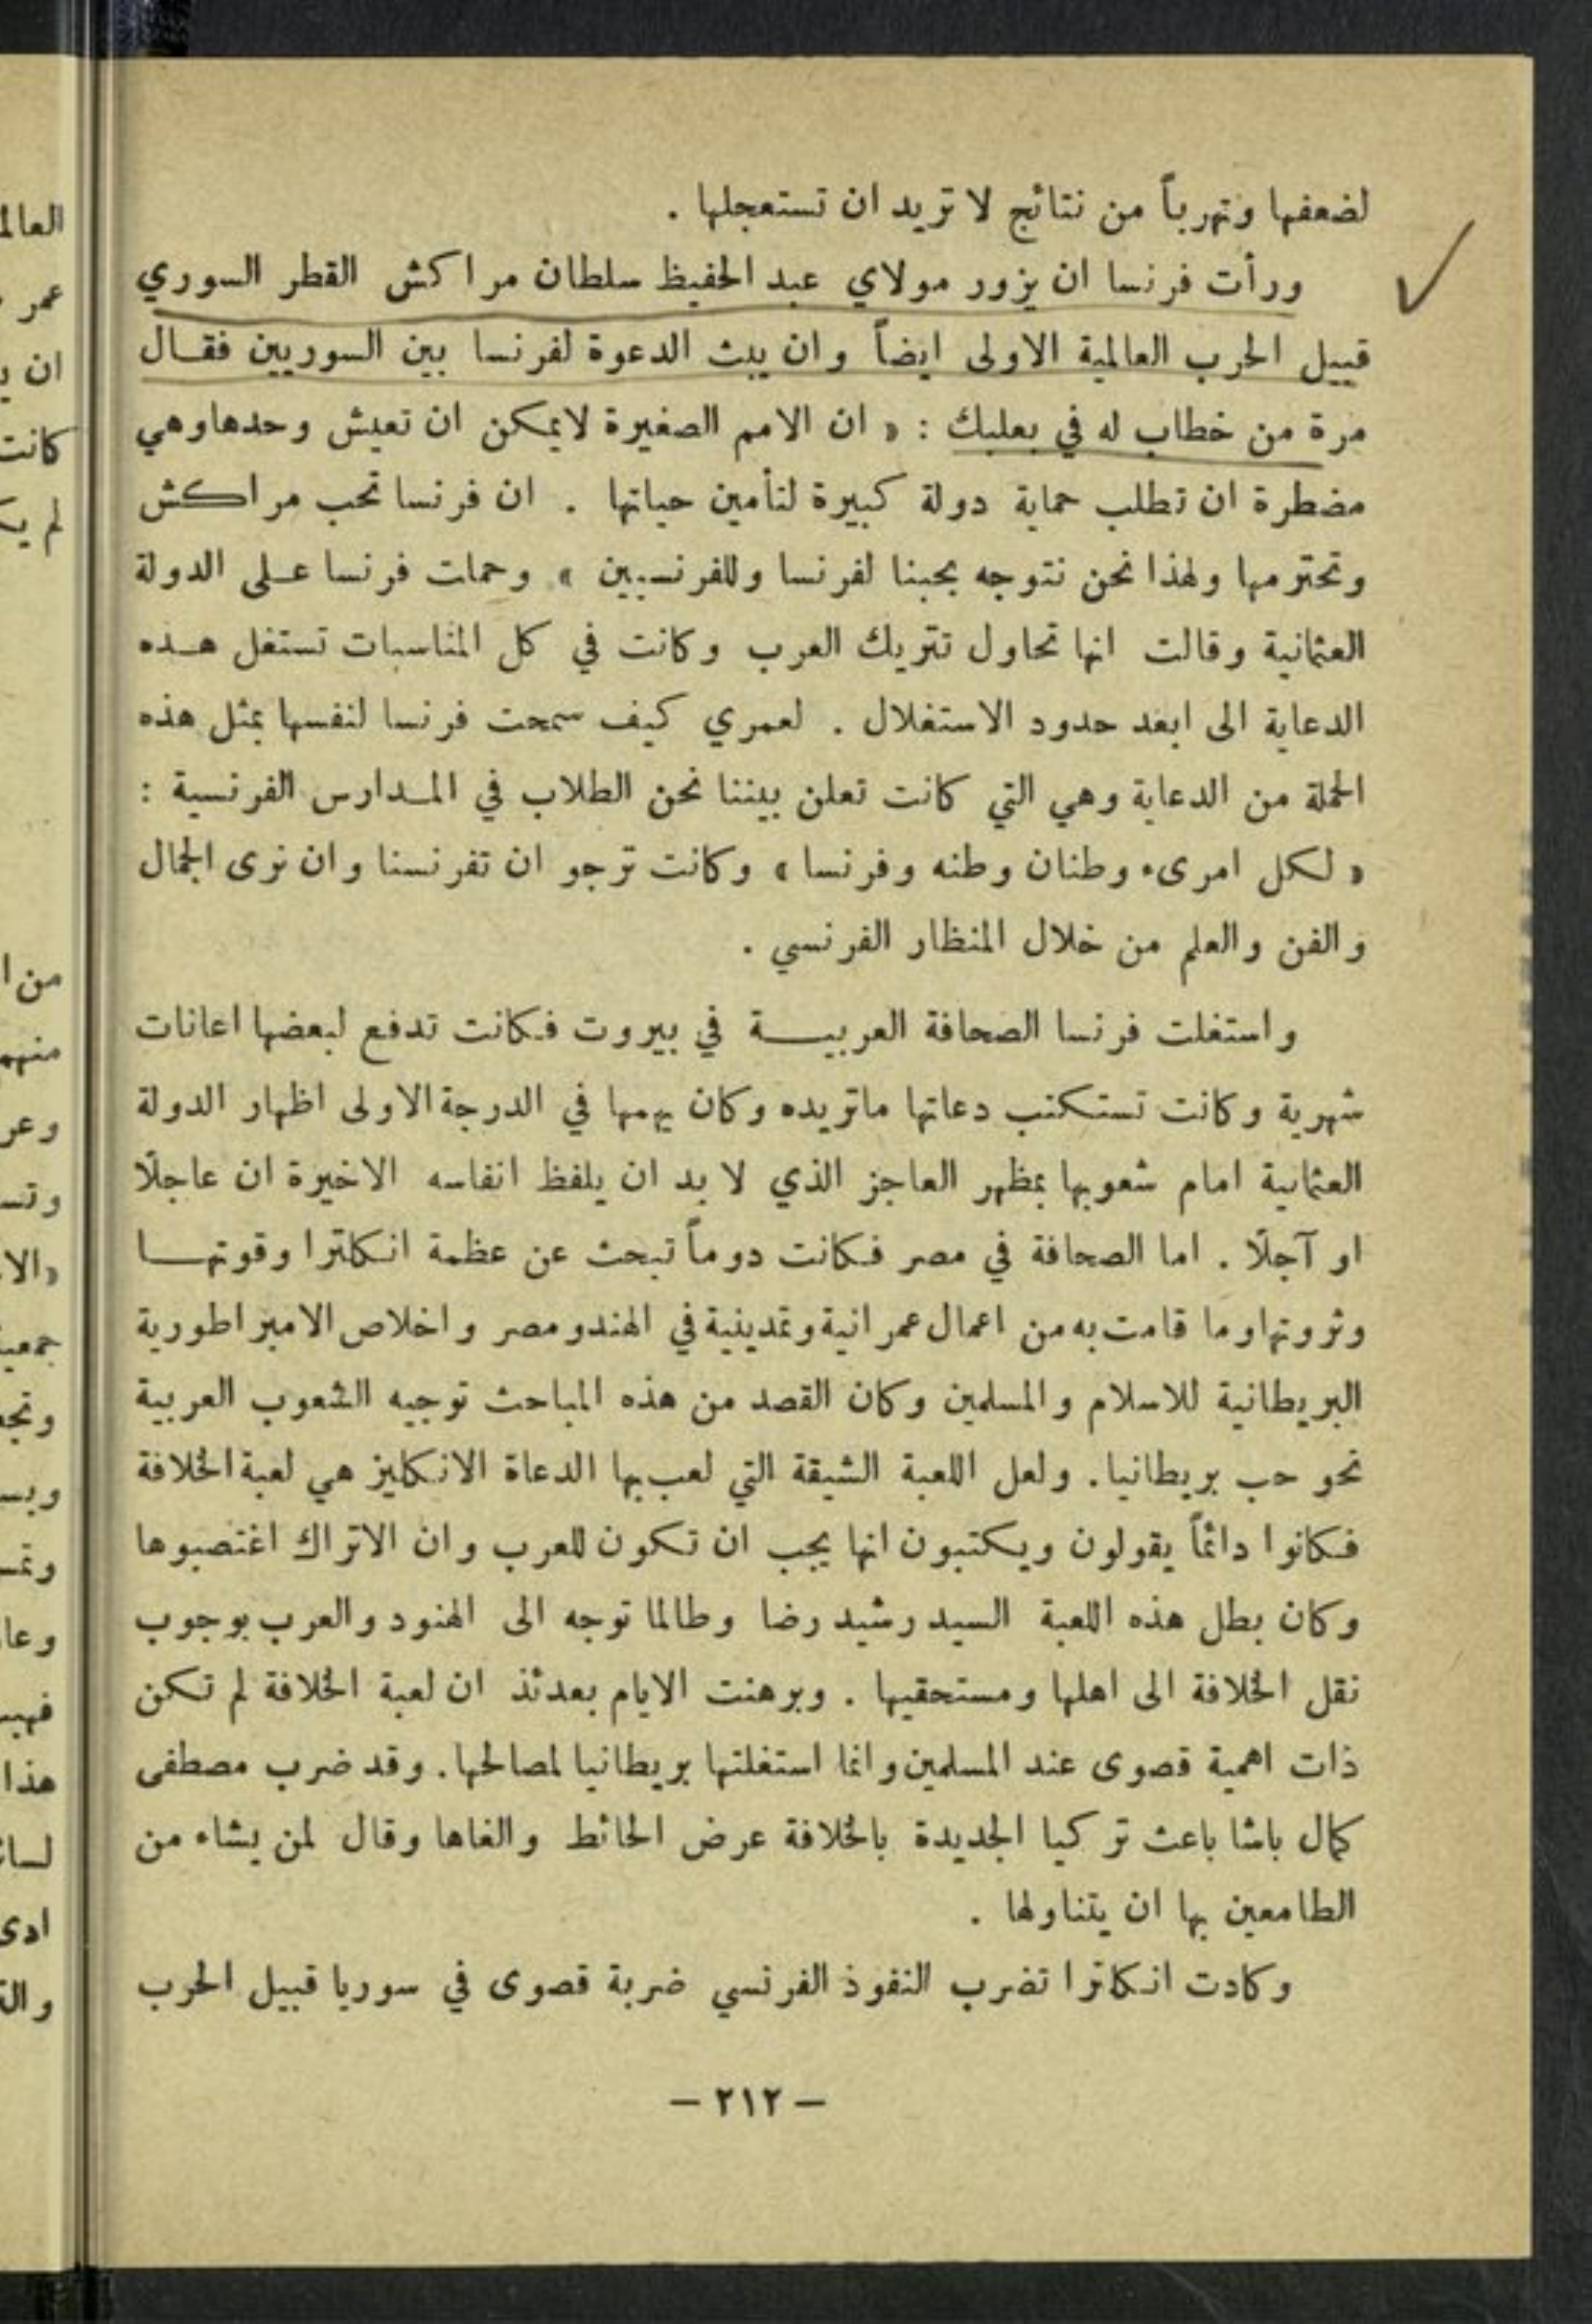 لضعفها وتهرباً من نتائج لا تريد ان تستعجلها .
ورأت فرنسا ان يزور مولاي عبد الحفيظ سلطان مراكش القطر السوري
قبيل الحرب العالمية الاولى ايضاً وان يبث الدعوة لفرنسا بين السوريين فقال
مرة من خطاب له في بعلبك : « ان الامم الصغيرة لايمكن ان تعيش وحدهاوهي
مضطرة ان تطلب حماية دولة كبيرة لتأمين حياتها . ان فرنسا تحب مراكش
وتحترمها ولهذا نحن نتوجه بحبنا لفرنسا وللفرنسيين » وحملت فرنسا على الدولة
العثمانية وقالت انها تحاول تتريك العرب وكانت في كل المناسبات تستغل هذه
الدعاية الى ابعد حدود الاستغلال . لعمري كيف سمحت فرنسا لنفسها بمثل هذه
الحملة من الدعاية وهي التي كانت تعلن بيننا نحن الطلاب في المدارس الفرنسية :
« لكل امرىء وطنان وطنه وفرنسا » وكانت ترجو ان تفرنسنا وان نرى الجمال
والفن والعلم من خلال المنظار الفرنسي .
واستغلت فرنسا الصحافة العربية في بيروت فكانت تدفع لبعضها اعانات
شهرية وكانت تستكتب دعاتها ماتريده وكان يهمها في الدرجة الاولى اظهار الدولة
العثمانية امام شعوبها بمظهر العاجز الذي لا بد ان يلفظ انفاسه الاخيرة ان عاجلًا
او آجلًا . اما الصحافة في مصر فكانت دوماً تبحث عن عظمة انكلترا وقوتها
وثروتهاوما قامت به من اعمال عمرانية وتمدينية في الهندومصر واخلاص الامبراطورية
البريطانية للاسلام والمسلمين وكان القصد من هذه المباحث توجيه الشعوب العربية
نحو حب بريطانيا . ولعل اللعبة الشيقة التي لعب بها الدعاة الانكليز هي لعبة الخلافة
فكانوا دائماً يقولون ويكتبون انها يجب ان تكون للعرب وان الاتراك اغتصبوها
وكان بطل هذه اللعبة السيد رشيد رضا وطالما توجه الى الهنود والعرب بوجوب
نقل الخلافة الى اهلها ومستحقيها . وبرهنت الايام بعدئذ ان لعبة الخلافة لم تكن
ذات اهمية قصوى عند المسلمين وانما استغلتها بريطانيا لمصالحها . وقد ضرب مصطفى
كمال باشا باعث تركيا الجديدة بالخلافة عرض الحائط والغاها وقال لمن يشاء من
الطامعين بها ان يتناولها .
وكادت انكلترا تضرب النفوذ الفرنسي ضربة قصوى في سوريا قبيل الحرب
— ٢١٢ —